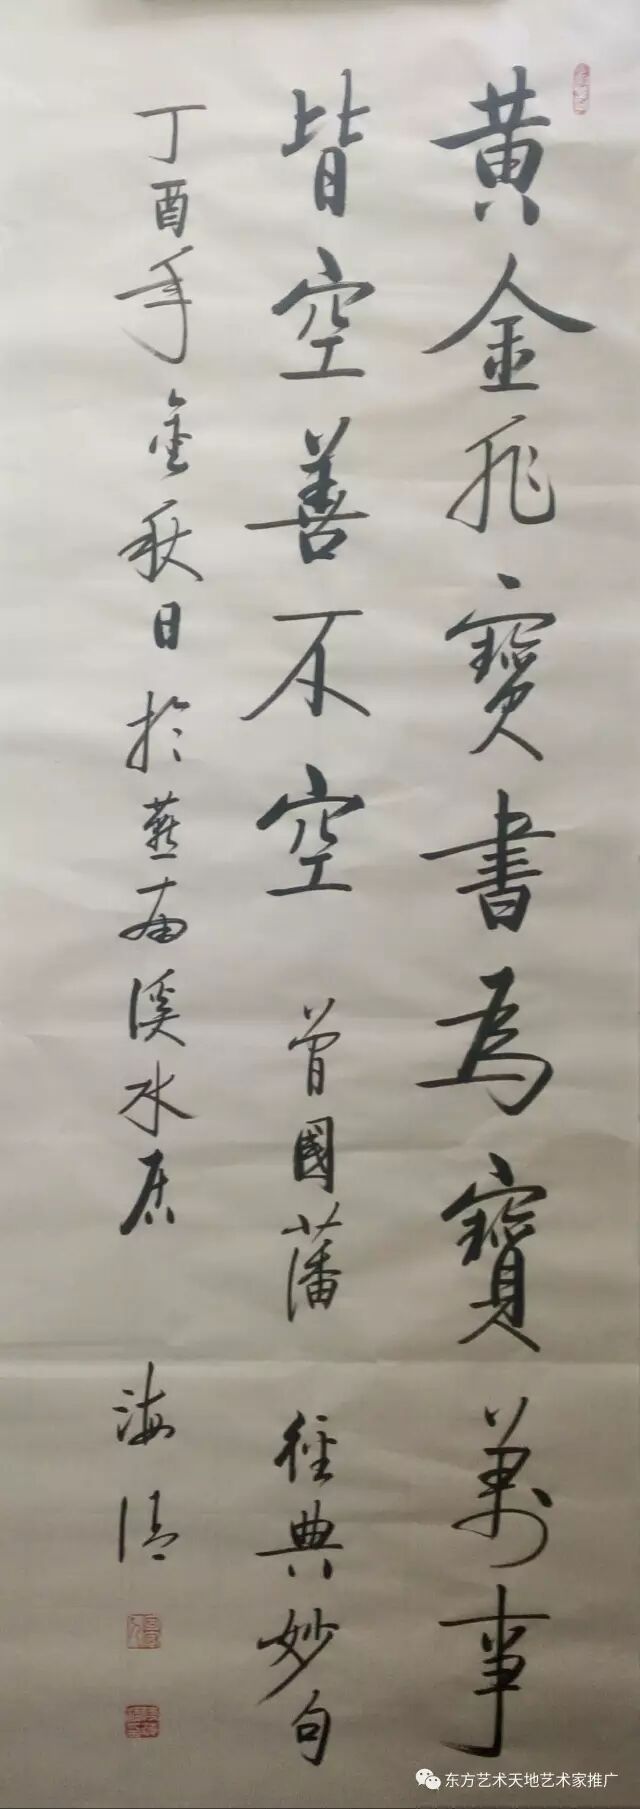 黄金非寶書為寶萬事
皆空善不空 曾國藩 經典妙句
丁酉年金秋日於燕南溪水居 海清
东方艺术天地艺术家推广